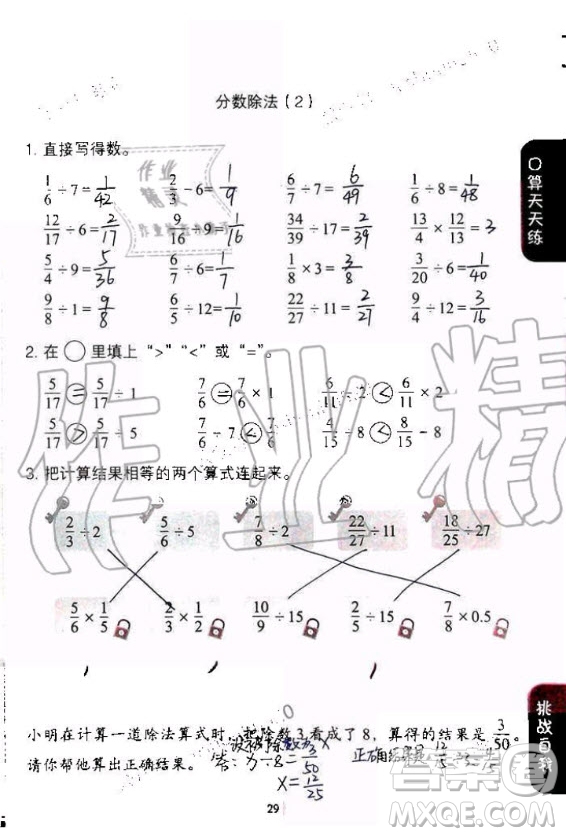 分数除法(2)
1. 直接写得数。
1/6÷7=1/42 2/3÷6=1/9 6/7÷7=6/49 1/6÷8=1/48
12/17÷6=2/17 9/16÷9=1/16 34/39÷17=2/39 13/4×12/13=3
5/4÷9=5/36 6/7÷6=1/7 1/8×3=3/8 3/20÷6=1/40
9/8÷1=9/8 6/5÷12=1/10 22/27÷11=2/27 9/4÷12=3/16
2. 在○里填上“>”“<”或“=”。
5/17=5/17÷1 7/6=7/6×1 6/11÷2<6/11×2
5/17>5/17÷5 7/6÷7<7/6 4/15÷8<8/15÷8
3. 把计算结果相等的两个算式连起来。
2/3÷2 5/6÷5 7/8÷2 22/27÷11 18/25÷27
5/6×1/5 2/3×1/2 10/9÷15 2/5÷15 7/8×0.5
小明在计算一道除法算式时，把除数3看成了8，算得的结果是3/50。
设被除数为x
请你帮他算出正确结果。
x=12/25
29
算天天练
挑战自我
作业
精灵
作业精灵
答案圈
MXQE.COM